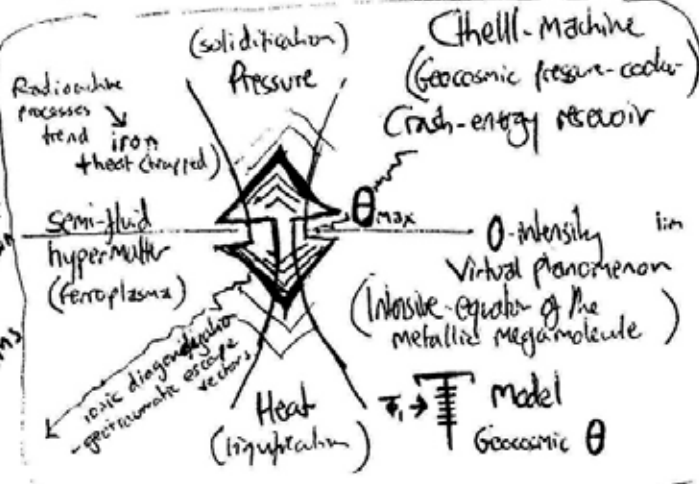 (solidification)
Pressure
Cthelll-Machine
(Geocosmic pressure-cooker
Crash-energy resevoir
Radioactive
processes
trend
iron
+heat (trapped)
θmax
Semi-fluid
hypermatter
(ferroplasma)
0-intensity
lim
Virtual phenomenon
(Intensive-equator of the
metallic megamolecule)
ionic diagonalization
-geotraumatic escape
vectors
Heat
(liquefication)
Model
Geocosmic θ